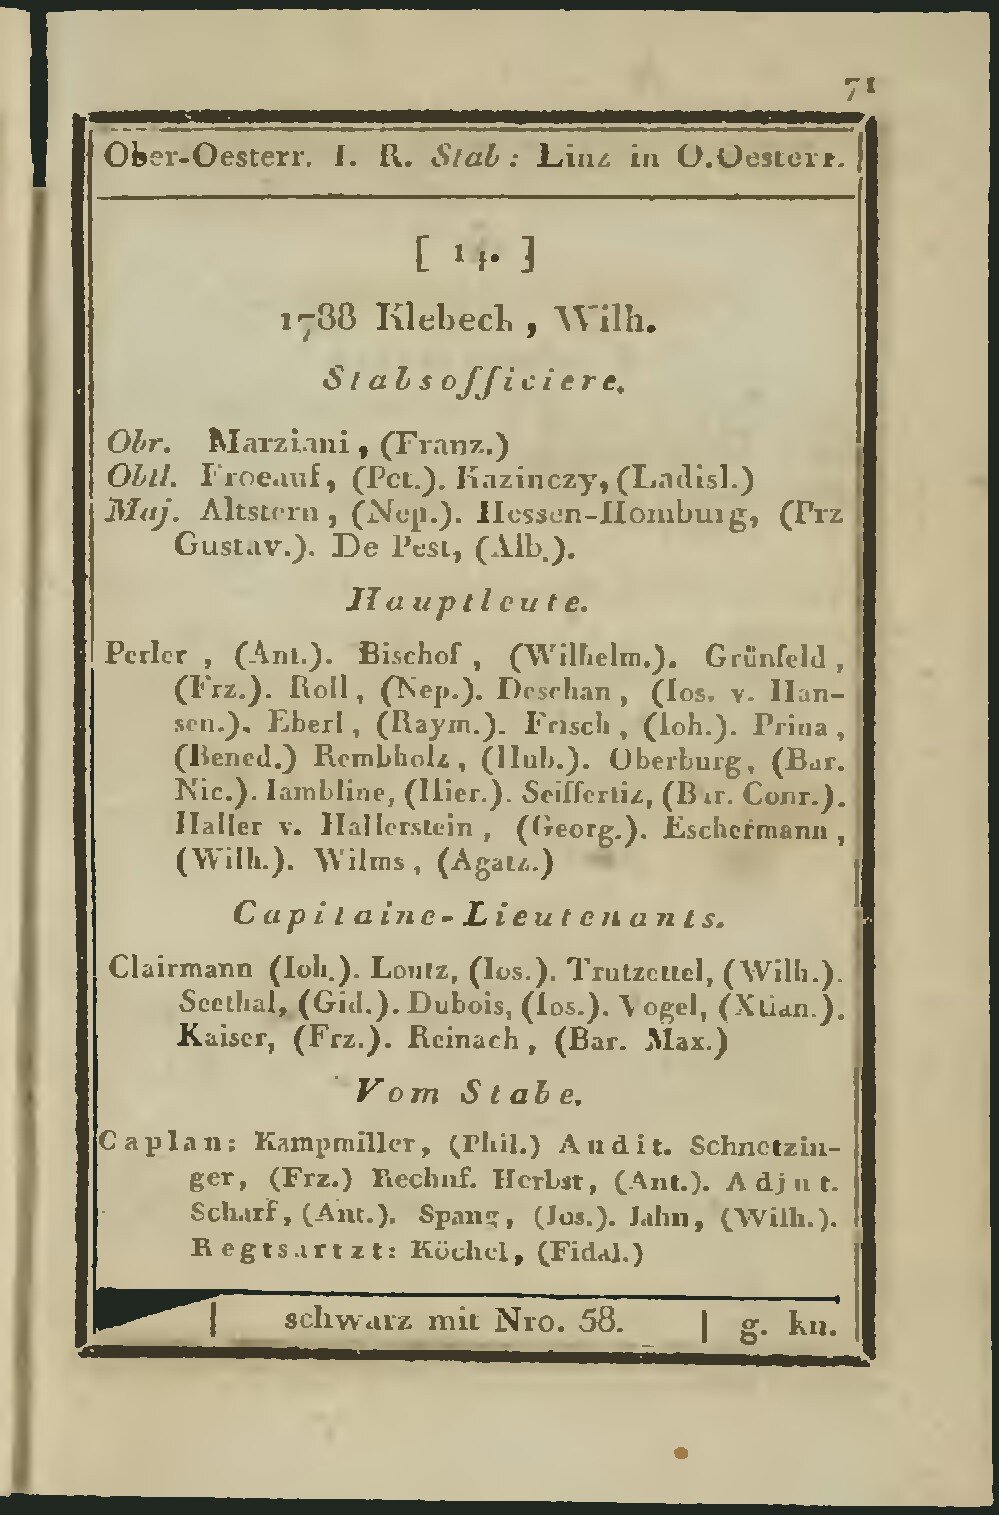 71
Ober-Oesterr. I. R. Stab: Linz in O.Oesterr.
[ 14. ]
1788 Klebech, Wilh.
Stabsofficiere.
Obr. Marziani, (Franz.)
Obtl. Froeauf, (Pet.). Kazinczy, (Ladisl.)
Maj. Altstern, (Nep.). Hessen-Homburg, (Prz
Gustav.). De Pest, (Alb.).
Hauptleute.
Perler, (Ant.). Bischof, (Wilhelm.). Grünfeld,
(Frz.). Roll, (Nep.). Deschan, (Ios. v. Han-
sen.). Eberl, (Raym.). Frisch, (Ioh.). Prina,
(Bened.) Rembholz, (Hub.). Oberburg, (Bar.
Nic.). Iambline, (Hier.). Seiffertiz, (Bar. Conr.).
Haller v. Hallerstein, (Georg.). Eschermann,
(Wilh.). Wilms, (Agatz.)
Capitaine-Lieutenants.
Clairmann (Ioh.). Lontz, (Ios.). Trutzettel, (Wilh.).
Seethal, (Gid.). Dubois, (Ios.). Vogel, (Xtian.).
Kaiser, (Frz.). Reinach, (Bar. Max.)
Vom Stabe.
Caplan: Kampmiller, (Phil.) Audit. Schnetzin-
ger, (Frz.) Rechnf. Herbst, (Ant.). Adjut.
Scharf, (Ant.). Spang, (Jos.). Jahn, (Wilh.).
Regtsartzt: Köchel, (Fidal.)
schwarz mit Nro. 58. | g. kn.